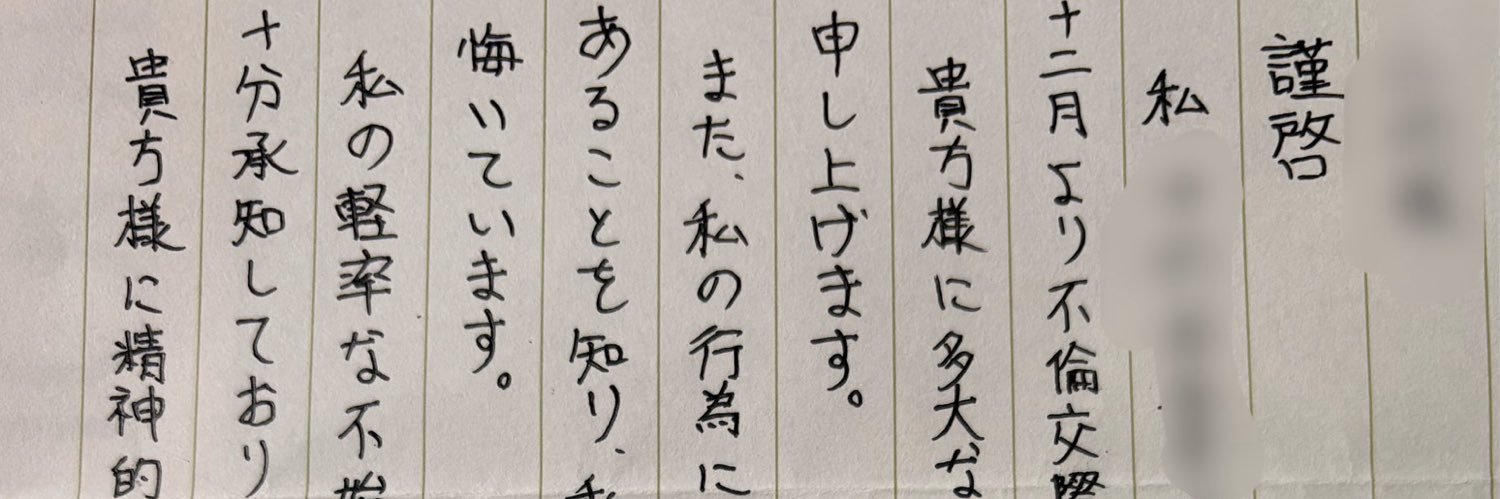 謹啓
私
十二月より不倫交際
貴方様に多大な
申し上げます。
また、私の行為に
あることを知り、私
悔いています。
私の軽率な不始
十分承知しており
貴方様に精神的